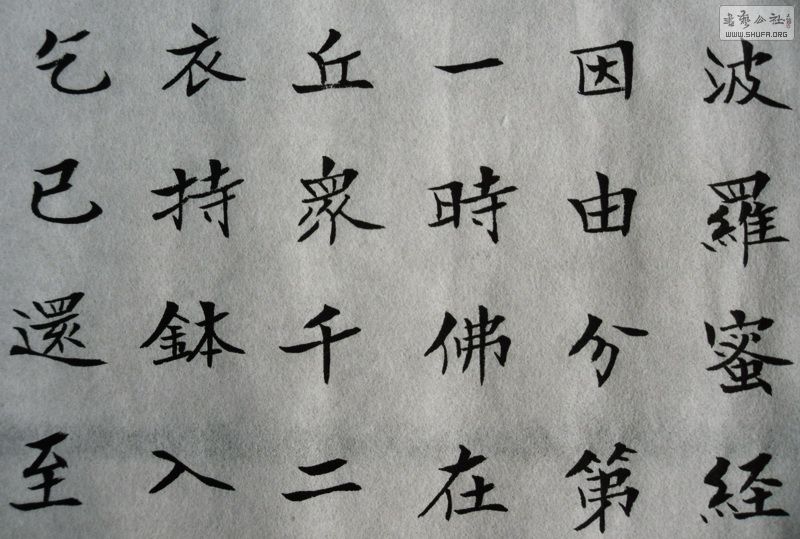 波羅蜜経
因由分第
一時佛在
丘衆千二
衣持鉢入
乞已還至
書藝公社
WWW.SHUFA.ORG